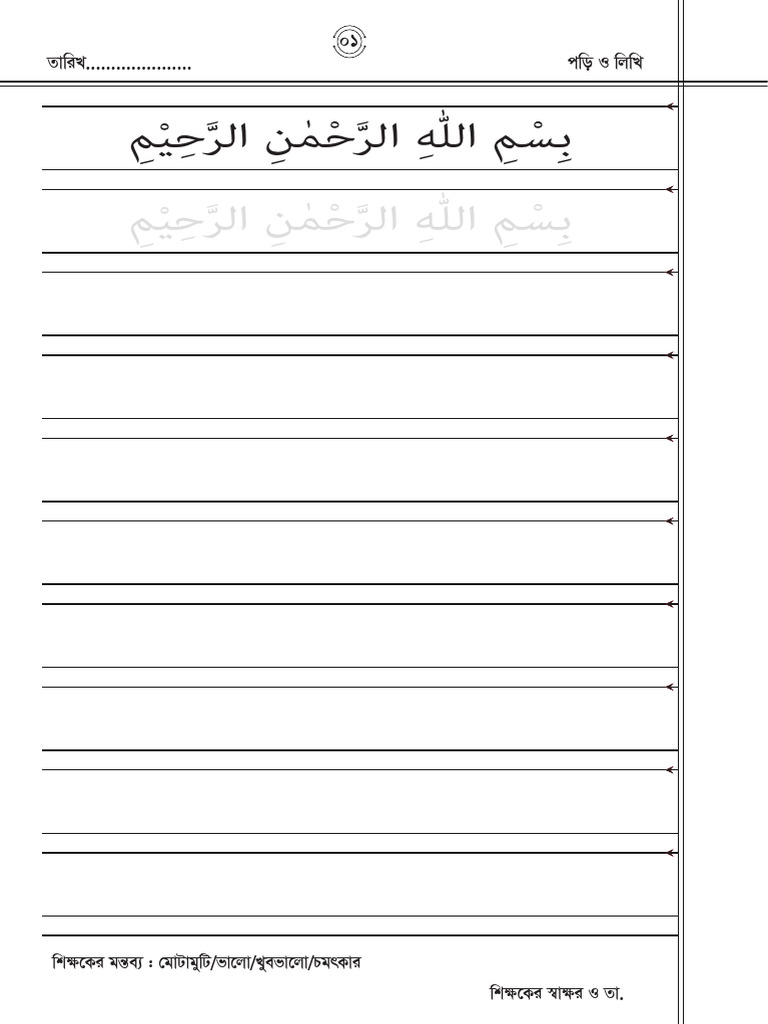 ০১
তারিখ..................... পড়ি ও লিখি
بِسْمِ اللّٰهِ الرَّحْمٰنِ الرَّحِيْمِ
بِسْمِ اللّٰهِ الرَّحْمٰنِ الرَّحِيْمِ
শিক্ষকের মন্তব্য : মোটামুটি/ভালো/খুবভালো/চমৎকার
শিক্ষকের স্বাক্ষর ও তা.